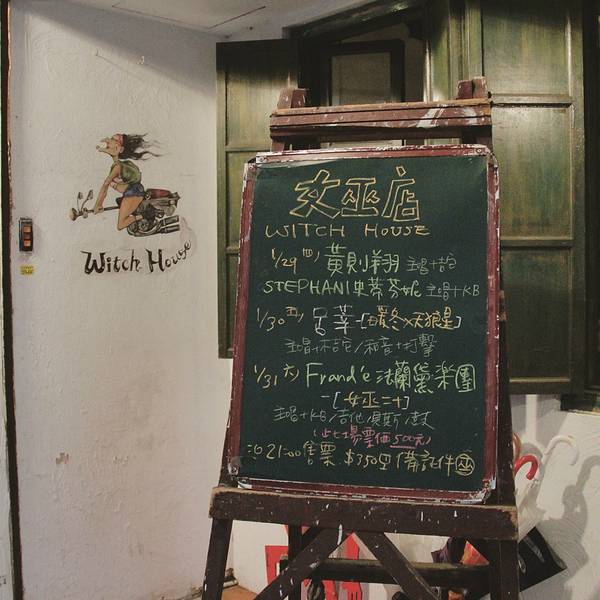 Witch House
女巫店
WITCH HOUSE
1/29 四 黃則翔 主唱+吉
STEPHANI 史蒂芬妮 主唱+KB
1/30 五 呂莘 [暖冬x天狼星]
主唱+木吉他/和音+打擊
1/31 六 Frand'e 法蘭黛樂團
-[女巫二十]
主唱+KB/吉他/貝斯/鼓
(此場票価500元)
21:00 售票 $350 備証件